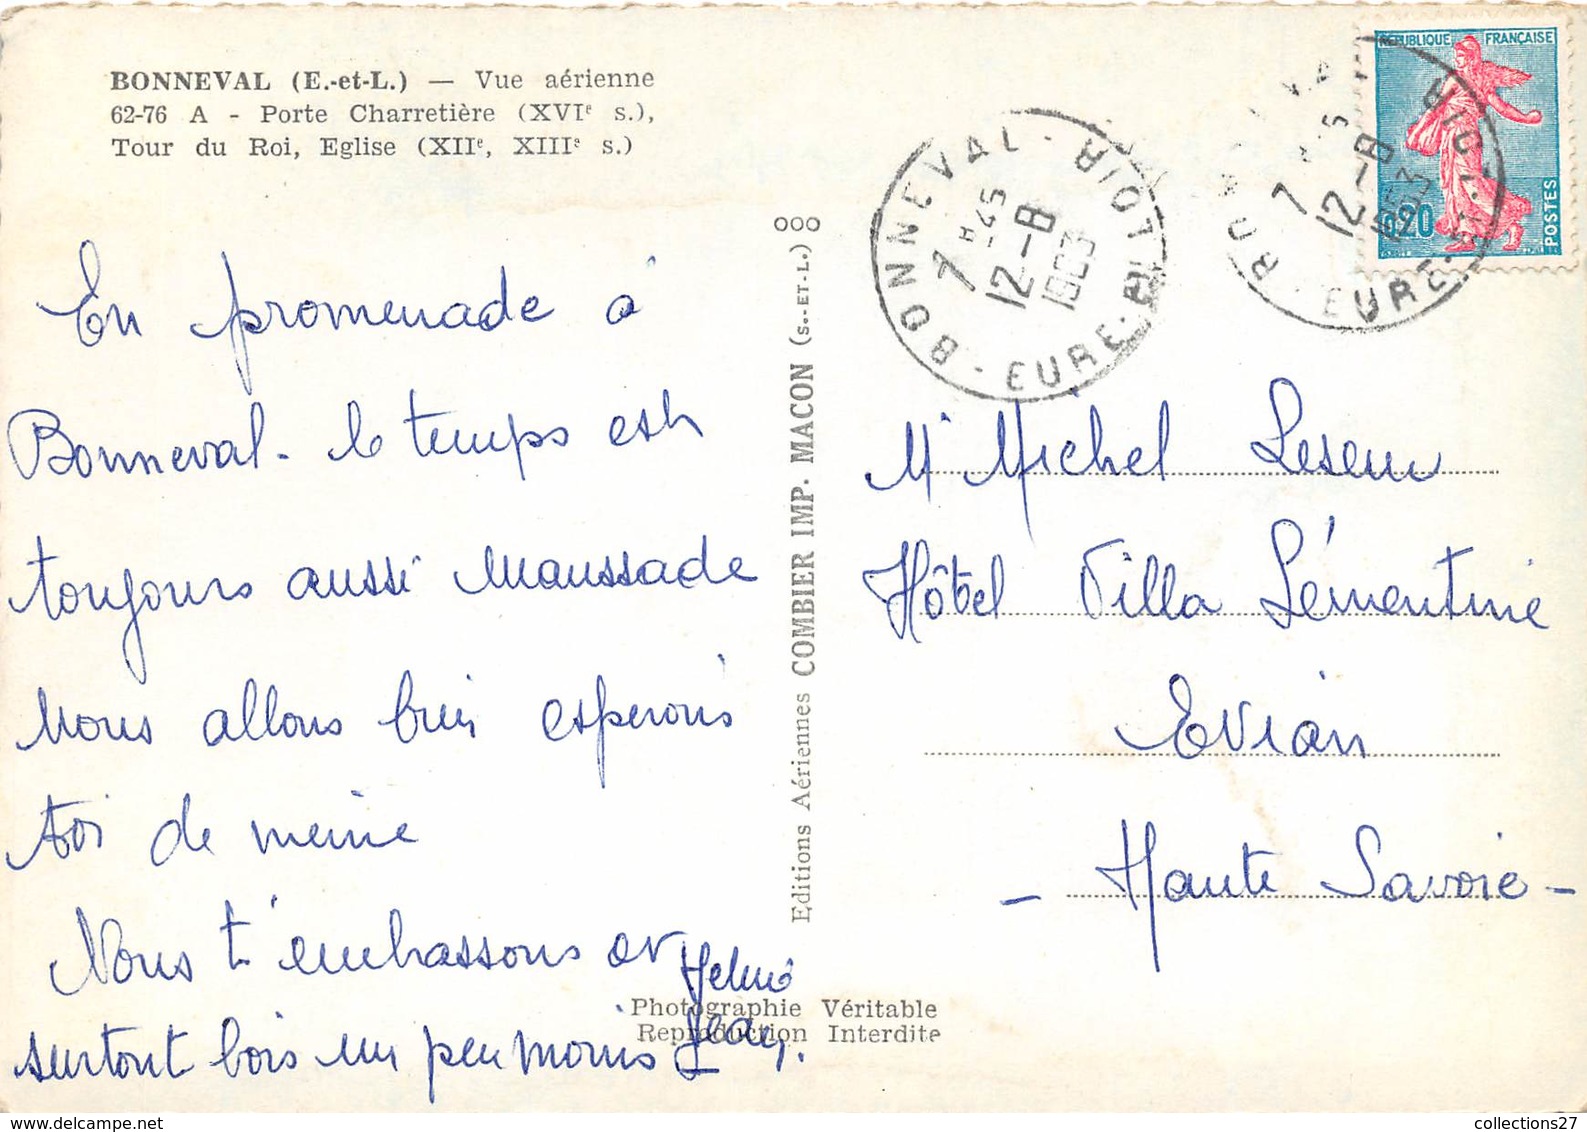 BONNEVAL (E.-et-L.) — Vue aérienne
62-76 A - Porte Charretière (XVIe s.),
Tour du Roi, Eglise (XIIe, XIIIe s.)
En promenade à
Bonneval - le temps est
toujours aussi maussade
nous allons bien esperons
toi de meme
Nous t'embrassons et
surtout bois un peu moins
Jean.
Photographie Véritable
Reproduction Interdite
Editions Aériennes COMBIER IMP. MACON (S.-ET-L.)
BONNEVAL - EURE-ET-LOIR
7 H 45
12-8
1963
REPUBLIQUE FRANÇAISE
0,20
POSTES
7
12-8
1963
EURE-ET-LOIR
Mr Michel Leseur
Hôtel Villa Lémentine
Evian
- Haute Savoie -
collections27